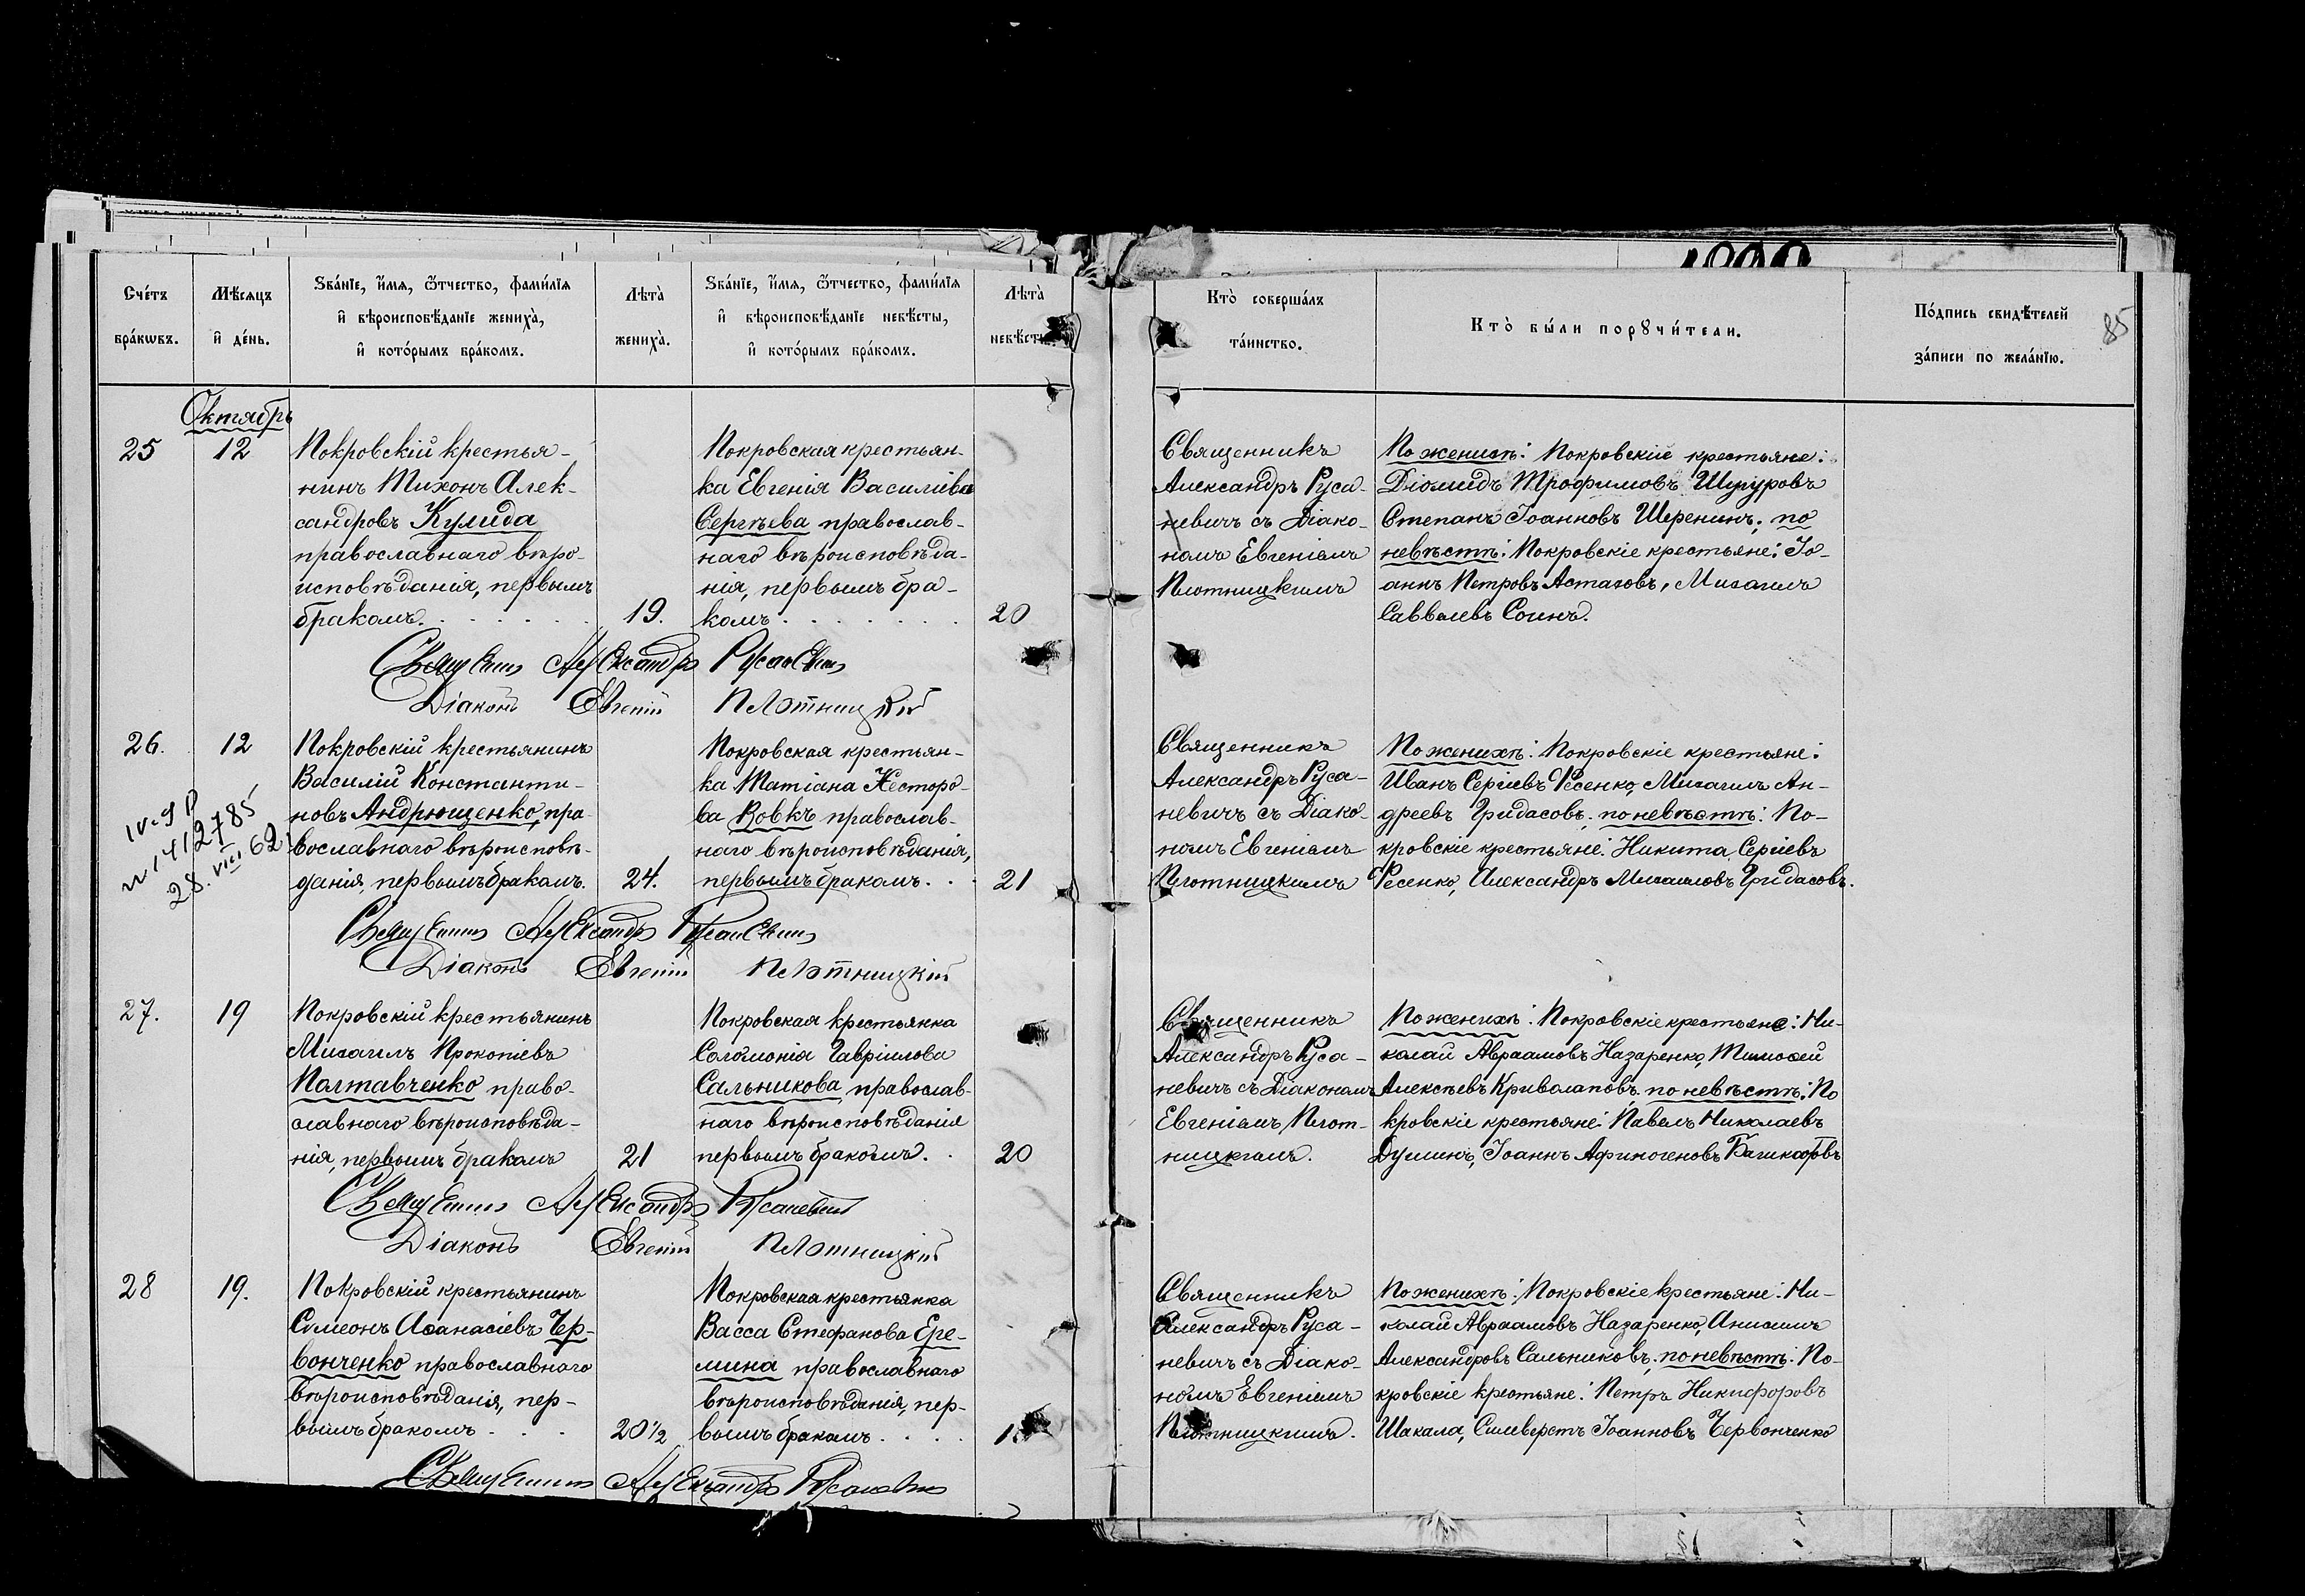 Счетъ браковъ.
Мѣсяцъ и день.
Званіе, имя, отчество, фамилія
и вѣроисповѣданіе жениха,
и которымъ бракомъ.
Лѣта
жениха.
Званіе, имя, отчество, фамилія
и вѣроисповѣданіе невѣсты,
и которымъ бракомъ.
Лѣта
невѣсты
Кто совершалъ
таинство.
Кто были поручители.
Подпись свидѣтелей
записи по желанію.
85
Октябрь
25
12
Покровскій крестья-
нинъ Тихонъ Алек-
сандровъ Кулида
православнаго вѣро-
исповѣданія, первымъ
бракомъ.
19.
Покровская крестьян-
ка Евгенія Василіева
Сергѣева православ-
наго вѣроисповѣда-
нія, первымъ бра-
комъ
20
Священникъ
Александръ Руса-
невичъ съ Діако-
номъ Евгеніемъ
Плотницкимъ
По женихѣ: Покровскіе крестьяне:
Діомидъ Трофимовъ Шугуровъ
Степанъ Іоанновъ Шеренинъ; по
невѣстѣ: Покровскіе крестьяне: Іо-
аннъ Петровъ Астаховъ, Михаилъ
Савваевъ Соинъ.
Священникъ Александръ Русаневичъ
Діаконъ Евгеній Плотницкій
26.
12
Покровскій крестьянинъ
Василій Константи-
новъ Андрющенко, пра-
вославнаго вѣроисповѣ-
данія, первымъ бракомъ.
24.
IV-ЯР
N 1412785
28.VIII 62
Покровская крестьян-
ка Татіана Несторо-
ва Вовкъ православ-
наго вѣроисповѣданія,
первымъ бракомъ.
21
Священникъ
Александръ Руса-
невичъ съ Діако-
номъ Евгеніемъ
Плотницкимъ
По женихѣ: Покровскіе крестьяне:
Иванъ Сергіевъ Фесенко, Михаилъ Ан-
дреевъ Гридасовъ; по невѣстѣ: По-
кровскіе крестьяне: Никита Сергіевъ
Фесенко, Александръ Михаиловъ Гридасовъ.
Священникъ Александръ Русаневичъ
Діаконъ Евгеній Плотницкій
27.
19
Покровскій крестьянинъ
Михаилъ Прокопіевъ
Полтавченко право-
славнаго вѣроисповѣда-
нія, первымъ бракомъ
21
Покровская крестьянка
Соломонія Гавріилова
Сальникова, православ-
наго вѣроисповѣданія
первымъ бракомъ.
20
Священникъ
Александръ Руса-
невичъ съ Діакономъ
Евгеніемъ Плот-
ницкимъ.
По женихѣ: Покровскіе крестьяне: Ни-
колай Авраамовъ Назаренко, Тимоѳей
Алексѣевъ Криволаповъ. по невѣстѣ: По
кровскіе крестьяне: Павелъ Николаевъ
Душинъ, Іоаннъ Афиногеновъ
Священникъ Александръ Русаневичъ
Діаконъ Евгеній Плотницкій
28
19.
Покровскій крестьянинъ
Симеонъ Аѳанасіевъ Чер-
вонченко православнаго
вѣроисповѣданія, пер-
вымъ бракомъ
20½
Покровская крестьянка
Васса Стефанова Ере-
мина православнаго
вѣроисповѣданія, пер-
вымъ бракомъ
Священникъ
Александръ Руса-
невичъ съ Діако-
номъ Евгеніемъ
Плотницкимъ.
По женихѣ: Покровскіе крестьяне: Ни-
колай Авраамовъ Назаренко, Анисимъ
Александровъ Сальниковъ; по невѣстѣ: По-
кровскіе крестьяне: Петръ Никифоровъ
Шакала, Сильверстъ Іоанновъ Червонченко
Священникъ Александръ Русаневичъ